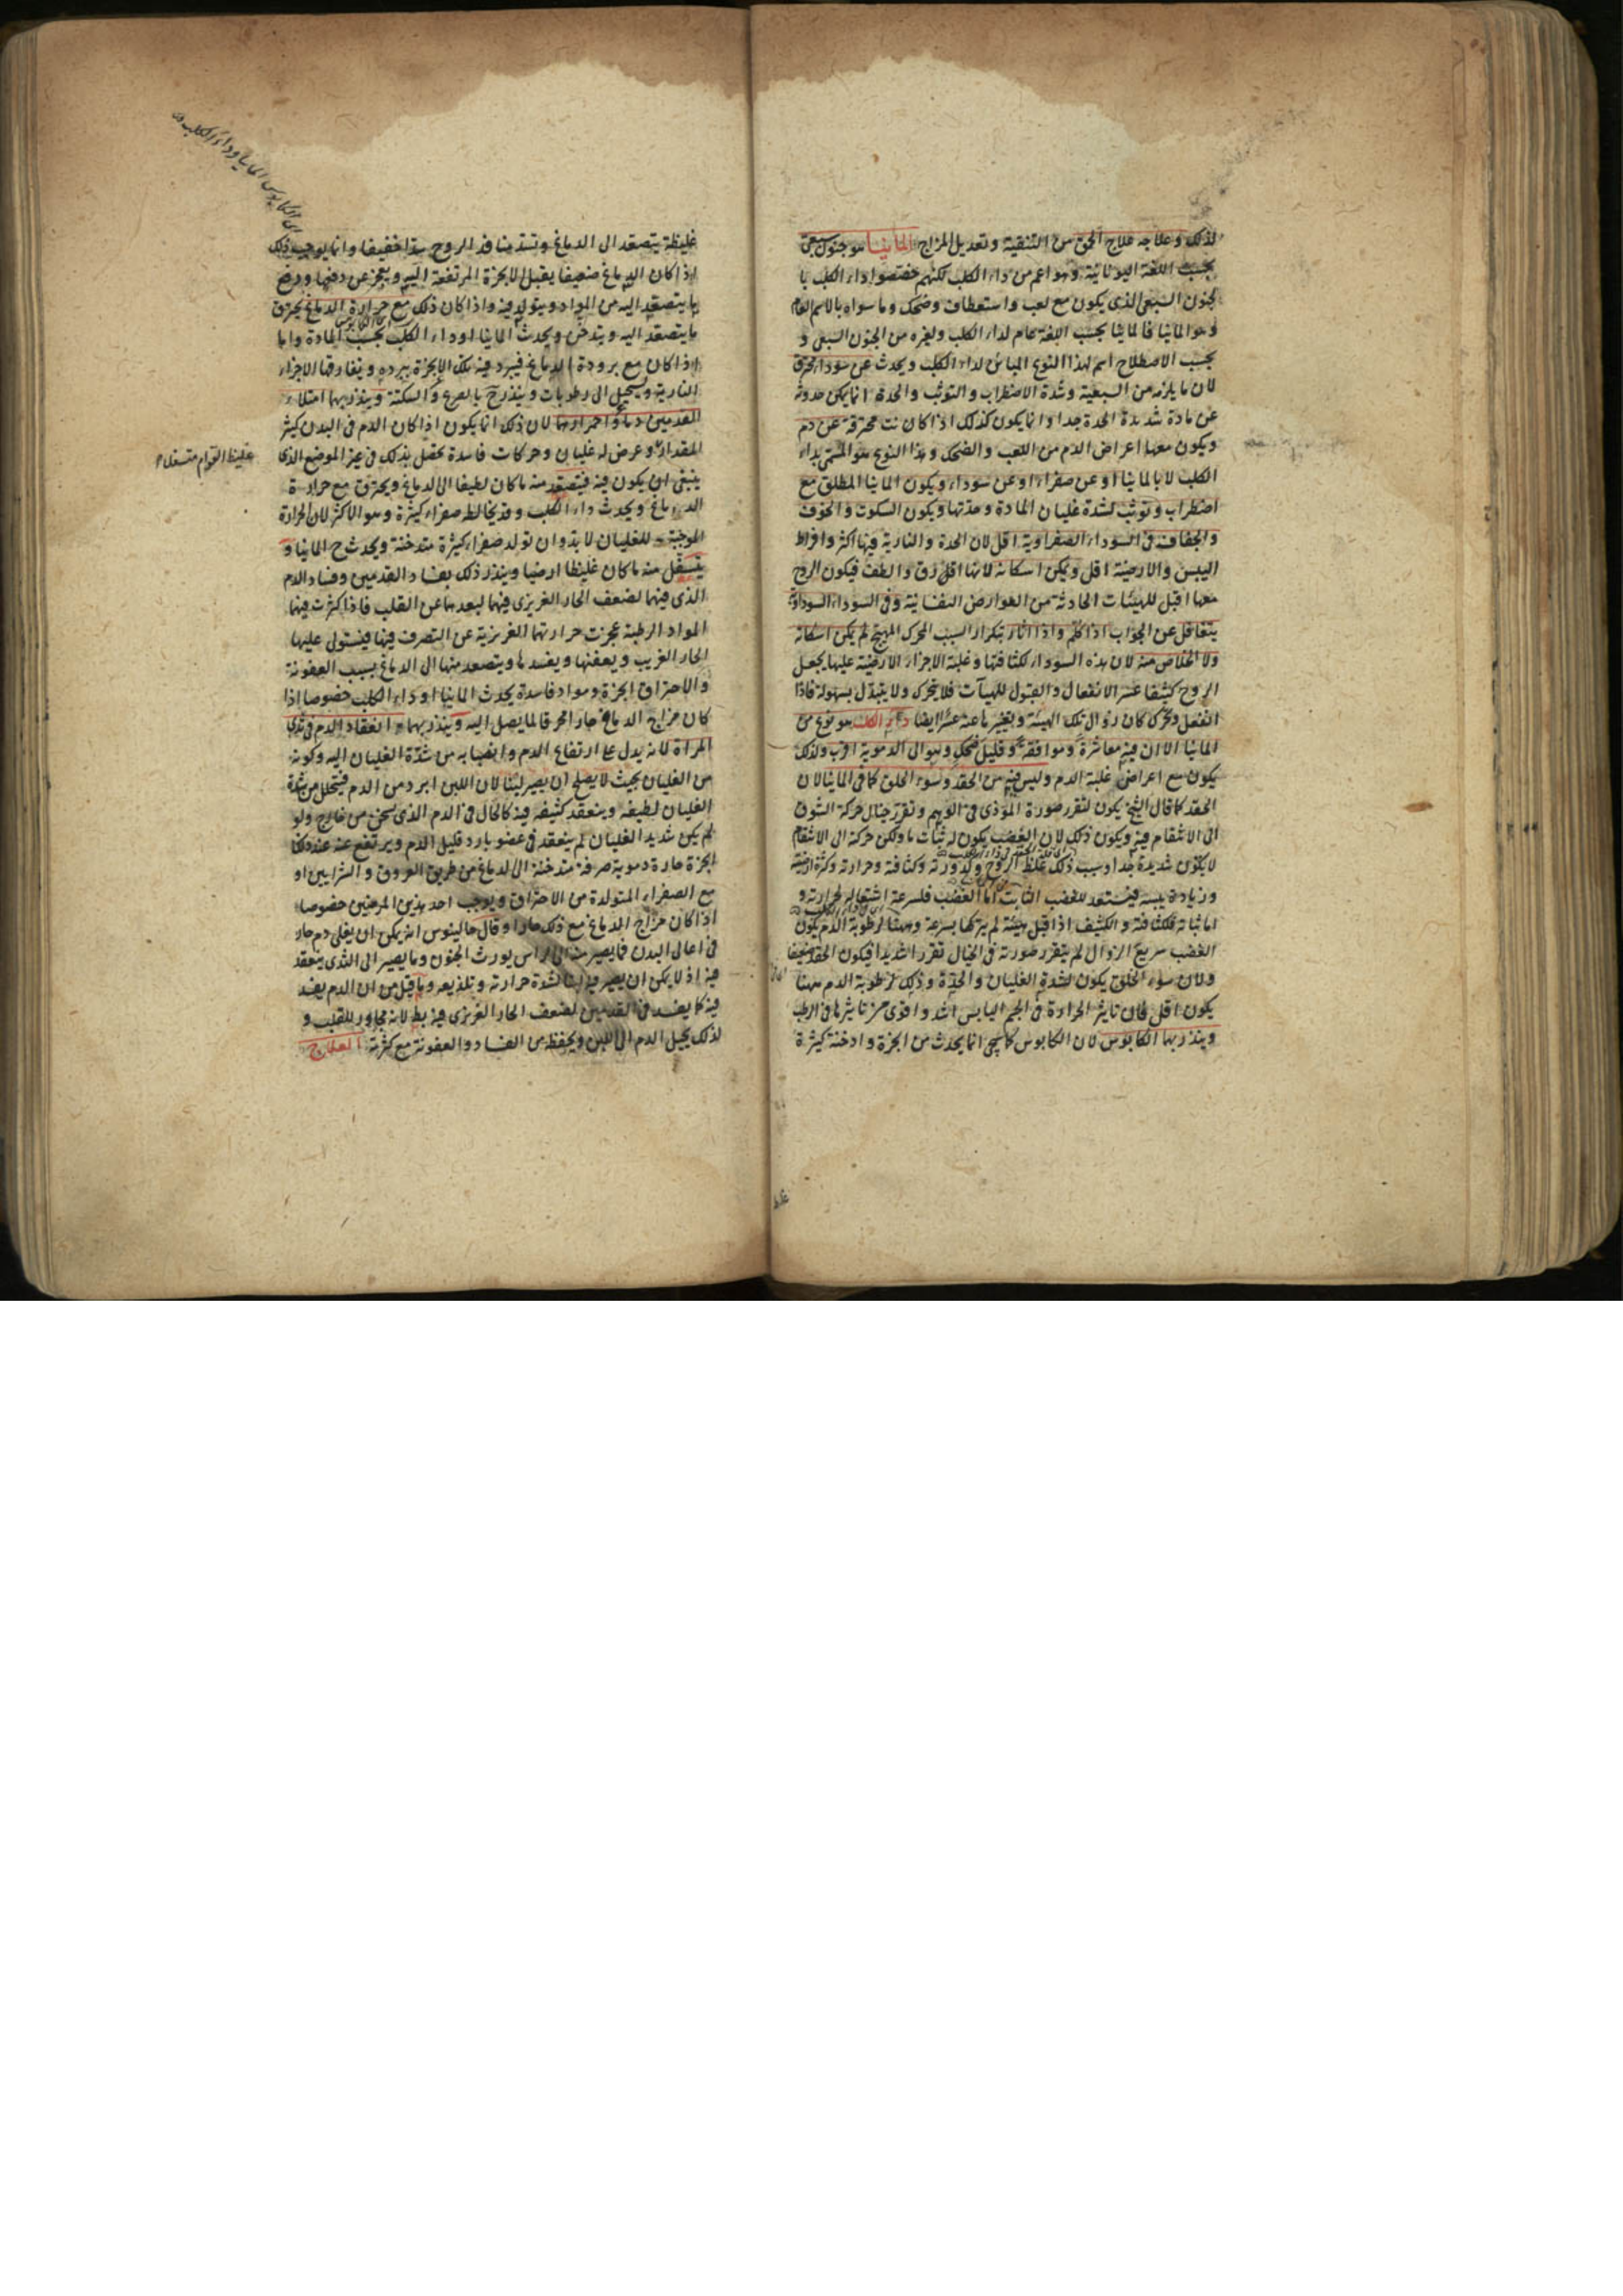 لذلك وعلاجه علاج الحمق من التنقية وتعديل المزاج المانيا هو جنون سبعى
بحسب اللغة اليونانية وهو اعم من داء الكلب لكنهم خصصوا داء الكلب با
لجنون السبعى الذى يكون مع لعب واستعطاف وضحك وما سواه بالاسم العام
وهو المانيا فالمانيا بحسب اللغة عام لداء الكلب ولغيره من الجنون السبعى و
بحسب الاصطلاح اسم لهذا النوع المباين لداء الكلب ويحدث عن سوداء محترقة
لان ما يلزمه من السبعية وشدة الاضطراب والتوثب والحدة انما يمكن حدوثه
عن مادة شديدة الحدة جدا وانما يكون كذلك اذا كانت محترقة عن دم
ويكون معها اعراض الدم من اللعب والضحك وهذا النوع هو المسمى بداء
الكلب لا بالمانيا او عن صفراء او عن سوداء ويكون المانيا المطلق مع
اضطراب وتوثب لشدة غليان المادة وحدتها ويكون السكوت والخوف
والجفاف فى السوداء الصفراوية اقل لان الحدة والنارية فيها اكثر وافراط
اليبس والارضية اقل ويمكن اسكانه لانها اقل وارق والطف فيكون الروح
معها اقبل للهيئات الحادثة من العوارض النفسانية وفى السوداء السوداوية
يتغافل عن الجواب اذا كلم واذا اثار بتكرار السبب المحرك المهيج لم يمكن اسكانه
ولا الخلاص منه لان هذه السوداء لكثافتها وغلبة الاجزاء الارضية عليها يجعل
الروح كثيفا عسر الانفعال والقبول للهيآت فلا يتحرك ولا يتبدل بسهولة فاذا
انفعل وتحرك كان زوال تلك الهيئة وتغيرها عنه عسرا ايضا داء الكلب هو نوع من
المانيا الا ان فيه معاشرة وموافقة وقليل ضحك وهو الى الدموية اقرب ولذلك
يكون مع اعراض غلبة الدم وليس فيه من الحقد وسوء الخلق كما فى المانيا لان
الحقد كما قال الشيخ يكون لتقرر صورة الموذى فى الوهم وتقرر خيال حركة الشوق
الى الانتقام فيه ويكون ذلك لان الغضب يكون له ثبات ما ولكن حركته الى الانتقام
لا يكون شديدة جدا وسبب ذلك غلظ الروح وكدورته وكثافته وحرارته وكثرة ارضيته
وزيادة يبسه فيستعد للغضب الثابت اما الغضب فلسرعة اشتعاله لحرارته و
اما ثباته فلكثافته والكثيف اذا قبل هيئة لم يتركها بسرعة وههنا لرطوبة الدم يكون
الغضب سريع الزوال لم يتقرر صورته فى الخيال تقررا شديدا فيكون الحقد ضعيفا
ولان سوء الخلق يكون لشدة الغليان والحدة وذلك لرطوبة الدم ههنا
يكون اقل فان تاثير الحرارة فى الجسم اليابس اشد واقوى من تاثيرها فى الرطب
وينذر بهما الكابوس لان الكابوس كما سيجئ انما يحدث من ابخرة وادخنة كثيرة
غلظ
اى الكابوس المانيا وداء الكلب
غليظة يتصعد الى الدماغ وتسد منافذ الروح سدا خفيفا وانما يوجب ذلك
اذا كان الدماغ ضعيفا يقبل الابخرة المرتفعة اليه ويعجز عن دفعها ودفع
ما يتصعد اليه من المواد ويتولد فيه واذا كان ذلك مع حرارة الدماغ يحترق
ما يتصعد اليه ويتدخن ويحدث المانيا او داء الكلب بحسب المادة واما
اذا كان مع برودة الدماغ فيبرد فيه تلك الابخرة ببرده ويفارقها الاجزاء
النارية ويستحيل الى رطوبات وينذر ح بالصرع والسكتة وينذر بهما امتلاء
القدمين دما واحمرارهما لان ذلك انما يكون اذا كان الدم فى البدن كثير
المقدار وعرض له غليان وحركات فاسدة يحصل بذلك فى غير الموضع الذى
غليظ القوام متسفلا
ينبغى ان يكون فيه فيتصعد منه ما كان لطيفا الى الدماغ ويحترق مع حرارة
الدماغ ويحدث داء الكلب وقد يخالطه صفراء كثيرة وهو الاكثر لان الحرارة
الموجبة للغليان لا بد وان تولد صفراء كثيرة متدخنة ويحدث ح المانيا و
يتسفل منه ما كان غليظا ارضيا وينذر ذلك بفساد القدمين وفساد الدم
الذى فيهما لضعف الحار الغريزى فيهما لبعدهما عن القلب فاذا كثرت فيهما
المواد الرطبة عجزت حرارتهما الغريزية عن التصرف فيها فيستولى عليها
الحار الغريب ويعفنها ويفسدها ويتصعد منها الى الدماغ بسبب العفونة
والاحتراق ابخرة ومواد فاسدة يحدث المانيا او داء الكلب خصوصا اذا
كان مزاج الدماغ حارا محرقا لما يصل اليه وينذر بهما انعقاد الدم فى ثدى
المراة لانه يدل على ارتفاع الدم وانصبابه من شدة الغليان اليه وكونه
من الغليان بحيث لا يصلح ان يصير لبنا لان اللبن ابرد من الدم فيتحلل من شدة
الغليان لطيفه وينعقد كثيفه فيه كالحال فى الدم الذى يسخن من خارج ولو
لم يكن شديد الغليان لم ينعقد فى عضو بارد قليل الدم ويرتفع عنه عند ذلك
ابخرة حارة دموية صرفة متدخنة الى الدماغ من طريق العروق والشرايين او
مع الصفراء المتولدة من الاحتراق ويوجب احد هذين المرضين خصوصا
اذا كان مزاج الدماغ مع ذلك حارا وقال جالينوس انه يمكن ان يغلى دم حار
فى اعالى البدن فما يصير منه الى الراس يورث الجنون وما يصير الى الثدى ينعقد
فيه اذ لا يمكن ان يصير فيه لبنا لشدة حرارته وتلذيعه وما قيل من ان الدم يفسد
فيه كما يفسد فى القدمين لضعف الحار الغريزى فيه بط لانه مجاور للقلب و
لذلك يحيل الدم الى اللبن ويحفظه من الفساد والعفونة مع كثرته العلاج